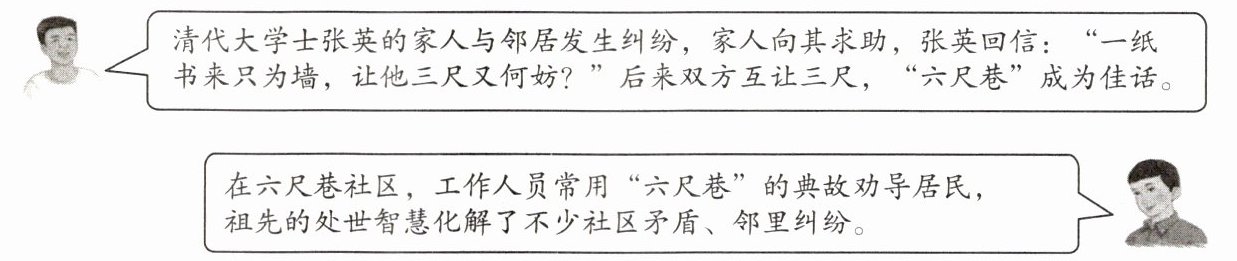 清代大学士张英的家人与邻居发生纠纷，家人向其求助，张英回信：“一纸
书来只为墙，让他三尺又何妨？”后来双方互让三尺，“六尺巷”成为佳话。
在六尺巷社区，工作人员常用“六尺巷”的典故劝导居民，
祖先的处世智慧化解了不少社区矛盾、邻里纠纷。